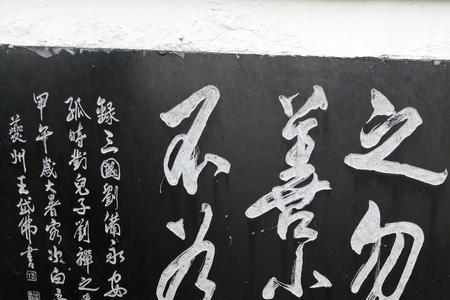 之勿
善小
不為
錄三國劉備永安
孤時對兒子劉禪之
甲午歲大暑客次白帝
夔州王佛書